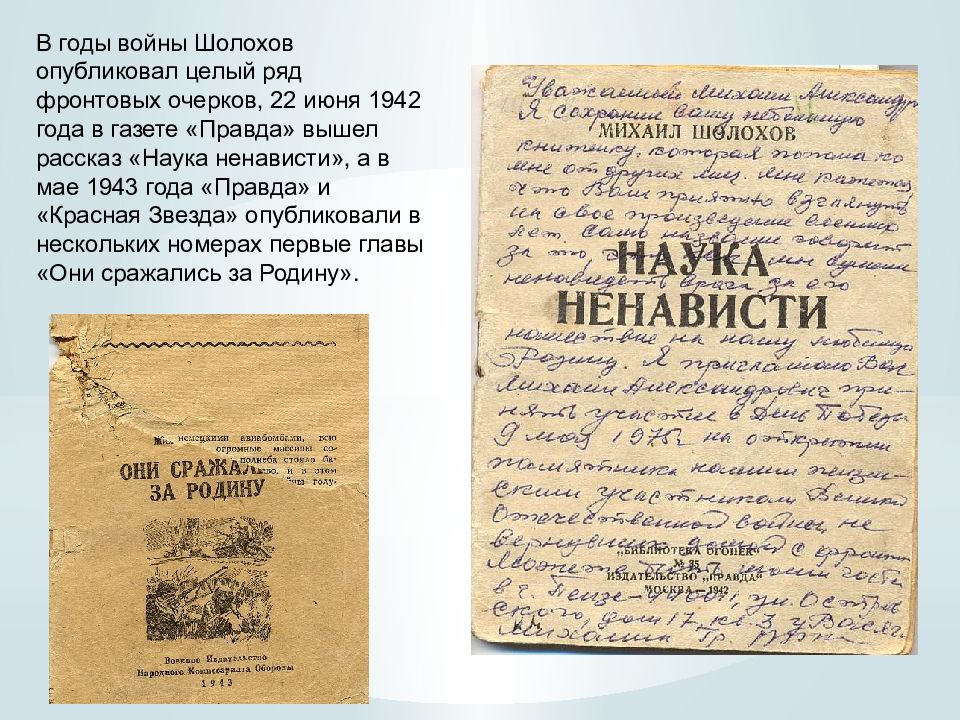 В годы войны Шолохов
опубликовал целый ряд
фронтовых очерков, 22 июня 1942
года в газете «Правда» вышел
рассказ «Наука ненависти», а в
мае 1943 года «Правда» и
«Красная Звезда» опубликовали в
нескольких номерах первые главы
«Они сражались за Родину».
немецкими авиабомбами, всю
огромные массивы со-
стояло
и в этом
ОНИ СРАЖАЛ
ЗА РОДИНУ
Военное Издательство
Народного Комиссариата Обороны
1943
Уважаемый Михаил Александр
Я сохранил вашу небольшую
МИХАИЛ ШОЛОХОВ
книжечку, которая попала ко
мне от других лиц. Мне кажется
что Вам приятно взглянуть
на свое произведение военных
лет. Само название говорит
за то,
НАУКА
ненавидеть врага за его
НЕНАВИСТИ
нашествие на нашу любимую
Родину. Я приглашаю Вас
Михаил Александрович при-
нять участие в День Победы
9 мая 1975г на открытии
памятника нашим пензен-
ским участникам Велико
Отечественной войны, не
вернувших с фронта
„БИБЛИОТЕКА ОГОНЕК“
№ 35
Можете быть моим гость
ИЗДАТЕЛЬСТВО „ПРАВДА“
МОСКВА — 1942
в г. Пензе ул. Остров
ского, дом 17, кв. 3 у
Михаила Гр.